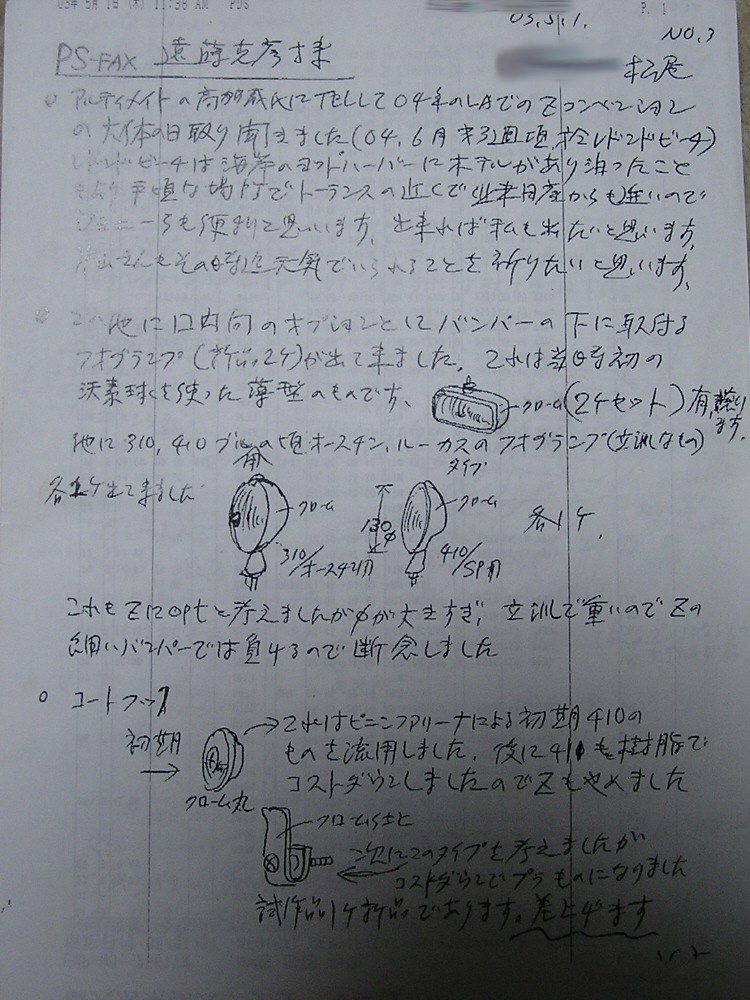 03年5月1日(木) 11:38 AM PDS P. 1
03.5.1.
NO.3
PS-FAX 遠藤克彦様
松尾
○ アルティメイトの高加茂氏にTELして04年のLAでのZコンベンション
の大体の日取り聞きました(04.6月第3週頃、於レドンドビーチ)
レドンドビーチは海岸のヨットハーバーにホテルがあり泊ったこと
もあり 手頃な場所でトーランスの近くで 在来日産からも近いので
も便利と思います。出来れば私も出たいと思います。
さんもその時迄元気でいられることを祈りたいと思います。
他に国内向のオプションとしてバンパーの下に取付る
フォグランプ(新品2ケ)が出て来ました。これは当時初の
沃素球を使った薄型のものです。
クローム(2ケセット)有、譲ります。
他に310, 410 ブルの頃オースチン、ルーカスのフォグランプ(立派なもの)
タイプ
各1ケ出て来ました
クローム
310/オースチン用
130φ
クローム
410/SP用
各1ケ.
これもZにoptと考えましたがφが大きすぎ、立派で重いのでZの
細いバンパーでは負けるので断念しました
○ コートフック
初期
クローム丸
これはピニンファリーナによる初期410の
ものを流用しました。後に410も樹脂で
コストダウンしましたのでZもやめました
クローム仕上
次にこのタイプを考えましたが
コストダウンでプラものになりました
試作品1ケ新品であります。差上げます